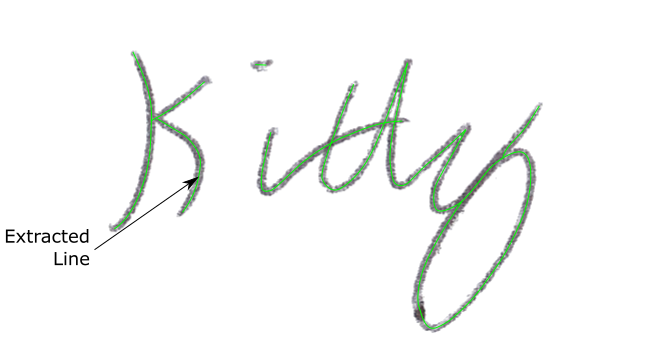 Kitty
Extracted
Line